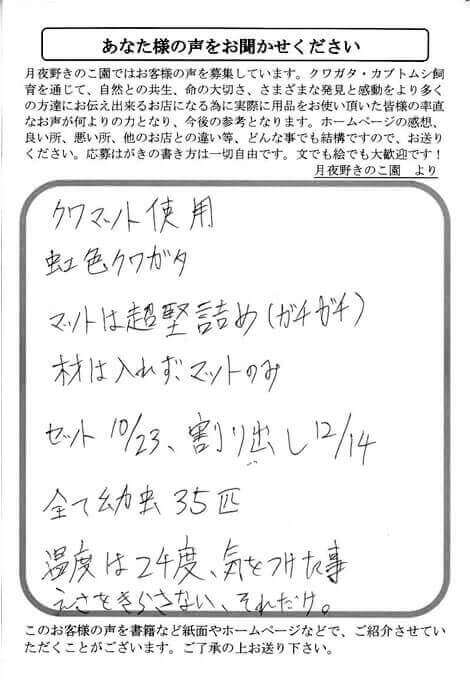 あなた様の声をお聞かせください
月夜野きのこ園ではお客様の声を募集しています。クワガタ・カブトムシ飼
育を通じて、自然との共生、命の大切さ、さまざまな発見と感動をより多く
の方達にお伝え出来るお店になる為に実際に用品をお使い頂いた皆様の率直
なお声が何よりの力となり、今後の参考となります。ホームページの感想、
良い所、悪い所、他のお店との違い等、どんな事でも結構ですので、お送り
ください。応募はがきの書き方は一切自由です。文でも絵でも大歓迎です！
月夜野きのこ園　より
クワマット使用
虹色クワガタ
マットは超堅詰め(ガチガチ)
材は入れず、マットのみ
セット 10/23、割り出し 12/14
全て幼虫 35匹
温度は24度、気をつけた事
えさをきらさない、それだけ。
このお客様の声を書籍など紙面やホームページなどで、ご紹介させてい
ただくことがございます。ご了承の上お送り下さい。